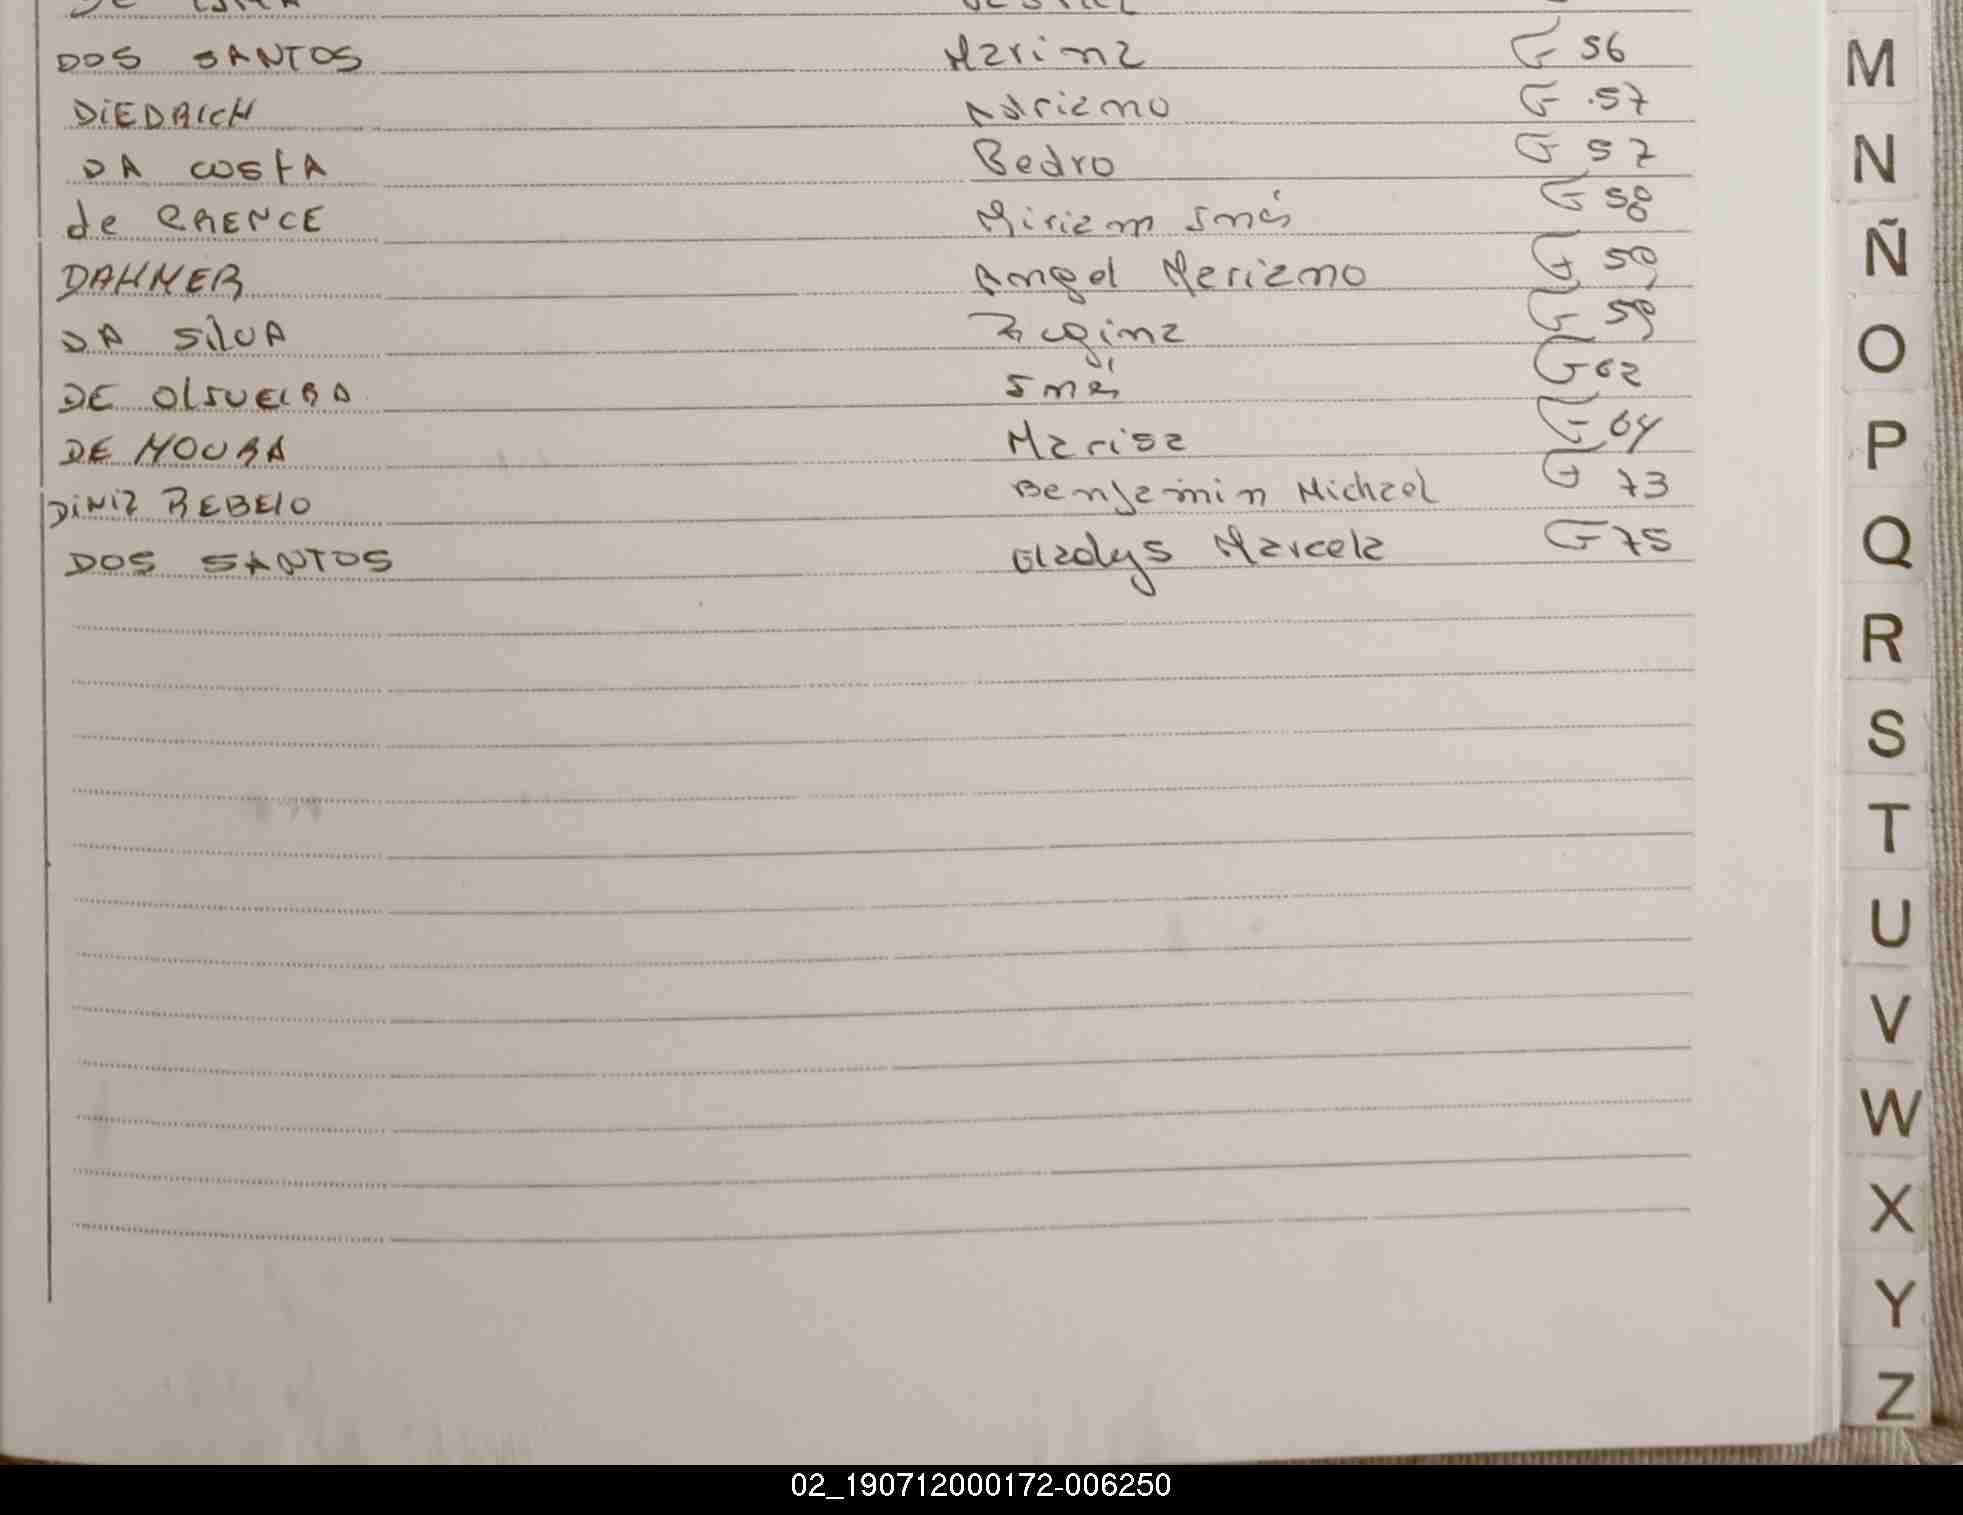 DOS SANTOS Marina G 56
DIEDRICH Adriano G 57
DA COSTA Pedro G 57
de Miriam Inés G 58
DAHMER Angel Mariano G 59
DA SILVA Regina G 59
DE OLIVEIRA Inés G 62
DE MOURA Marisa G 64
DINIZ REBELO Benjamin Michael G 73
DOS SANTOS Gladys Marcela G 75
M
N
Ñ
O
P
Q
R
S
T
U
V
W
X
Y
Z
02_190712000172-006250